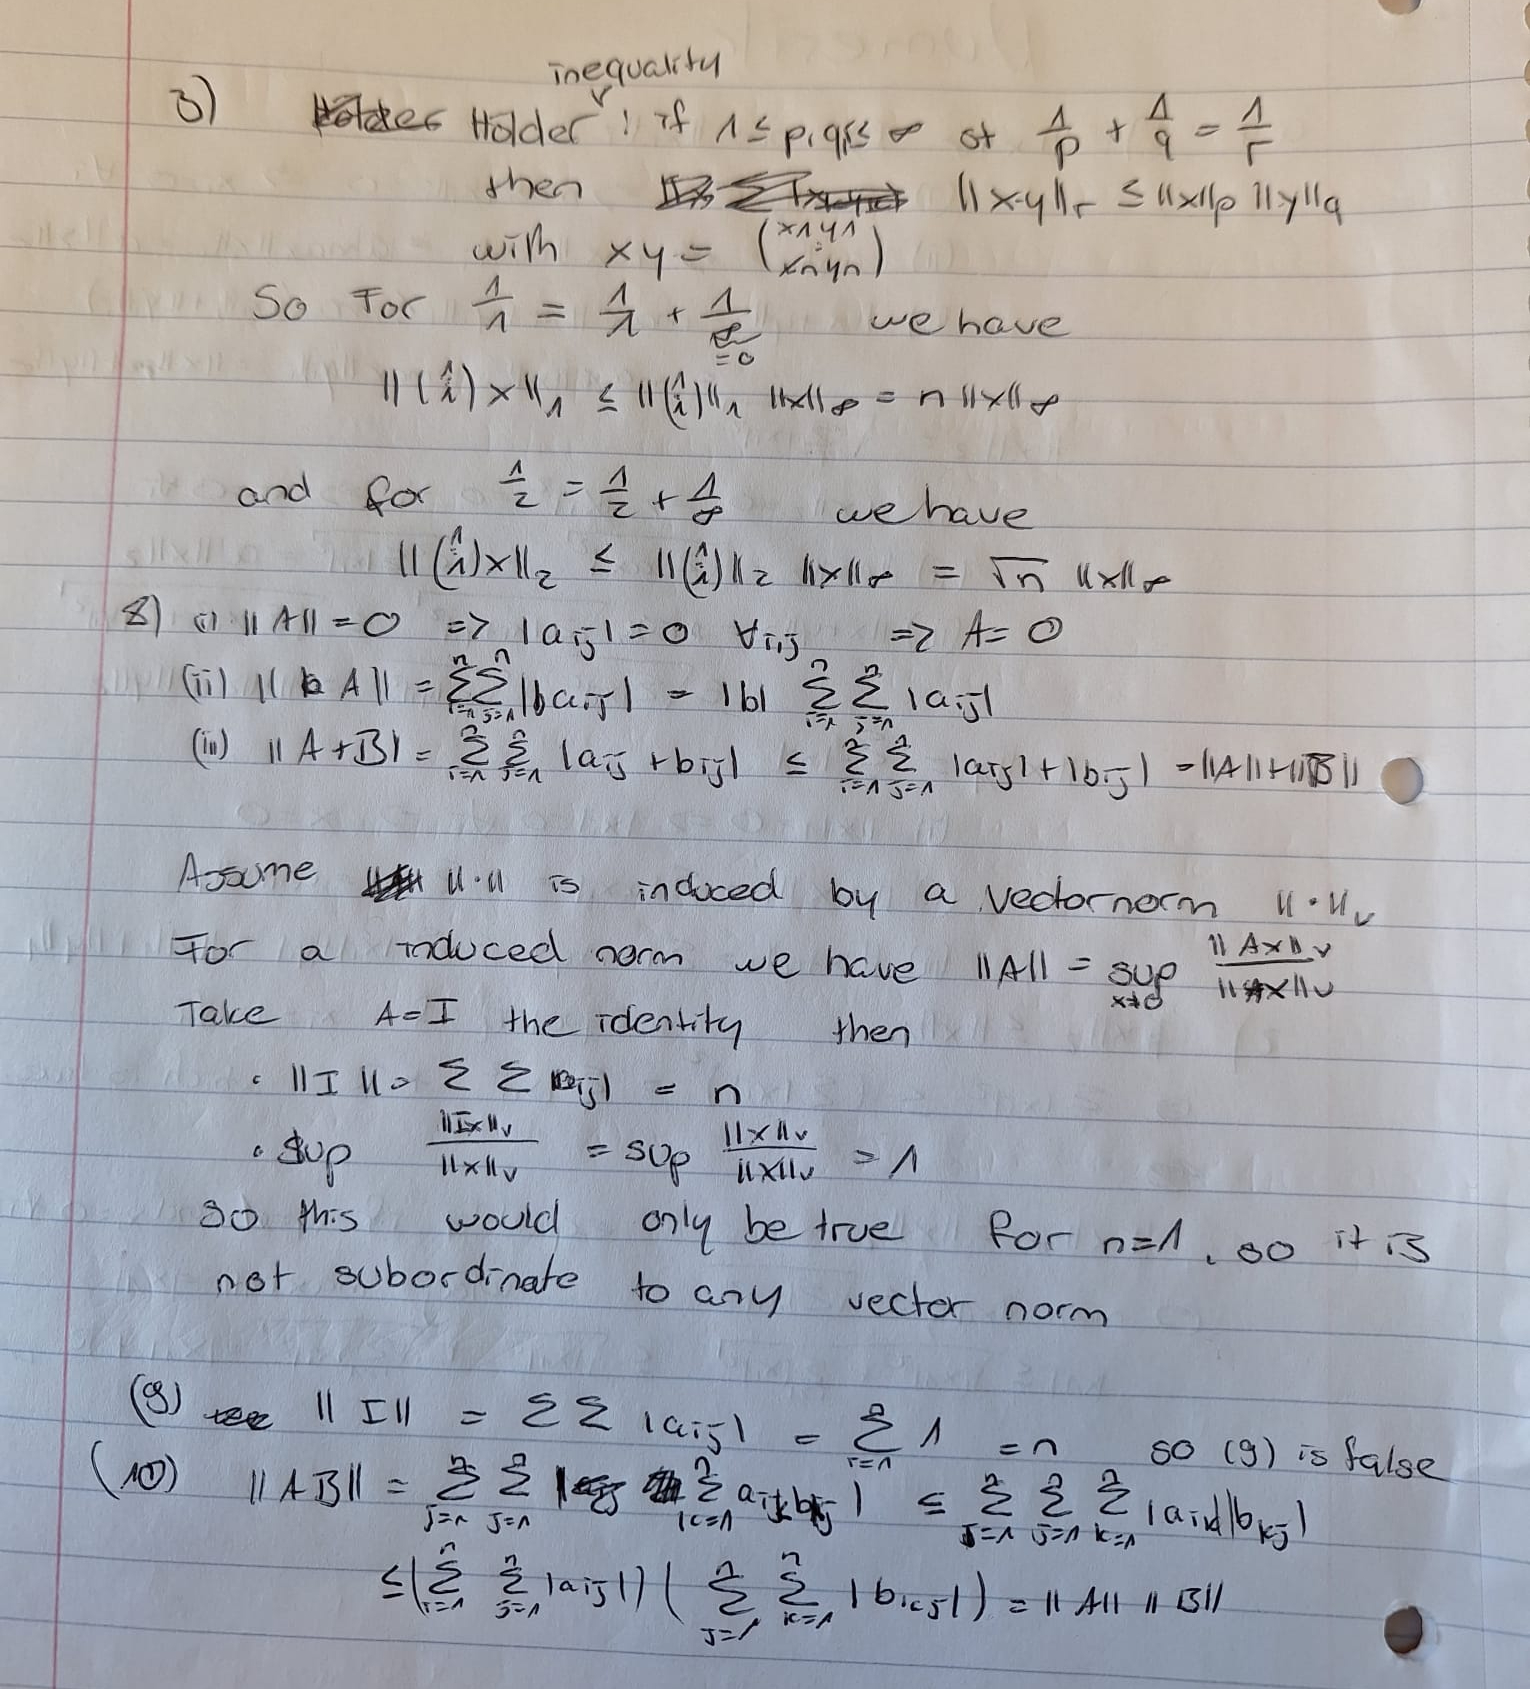 inequality
3) Hölder : if 1 ≤ p,q,r ≤ ∞ st 1/p + 1/q = 1/r
then ||x·y||r ≤ ||x||p ||y||q
with xy = (x1y1 ⋮ xnyn)
So For 1/1 = 1/1 + 1/∞ we have
=0
||(1 ⋮ 1)x||1 ≤ ||(1 ⋮ 1)||1 ||x||∞ = n ||x||∞
and for 1/2 = 1/2 + 1/∞ we have
||(1 ⋮ 1)x||2 ≤ ||(1 ⋮ 1)||2 ||x||∞ = √n ||x||∞
8) (i) ||A|| = 0 => |aij| = 0 ∀i,j => A = 0
(ii) ||b A|| = n∑i=1 n∑j=1 |b aij| = |b| n∑i=1 n∑j=1 |aij|
(iii) ||A+B| = n∑i=1 n∑j=1 |aij + bij| ≤ n∑i=1 n∑j=1 |aij| + |bij| = ||A|| + ||B||
Assume ||·|| is induced by a vectornorm ||·||v
For a induced norm we have ||A|| = sup x≠0 ||Ax||v / ||x||v
Take A=I the identity then
• ||I|| = ∑ ∑ |aij| = n
• sup ||Ix||v / ||x||v = sup ||x||v / ||x||v = 1
so this would only be true for n=1, so it is
not subordinate to any vector norm
(9) ||I|| = ∑∑ |aij| = n∑i=1 1 = n so (9) is false
(10) ||AB|| = n∑j=1 n∑j=1 | n∑k=1 aik bkj | ≤ n∑j=1 n∑j=1 n∑k=1 |aik||bkj|
≤ (n∑i=1 n∑j=1 |aij|) (n∑j=1 n∑k=1 |bkj|) = ||A|| ||B||